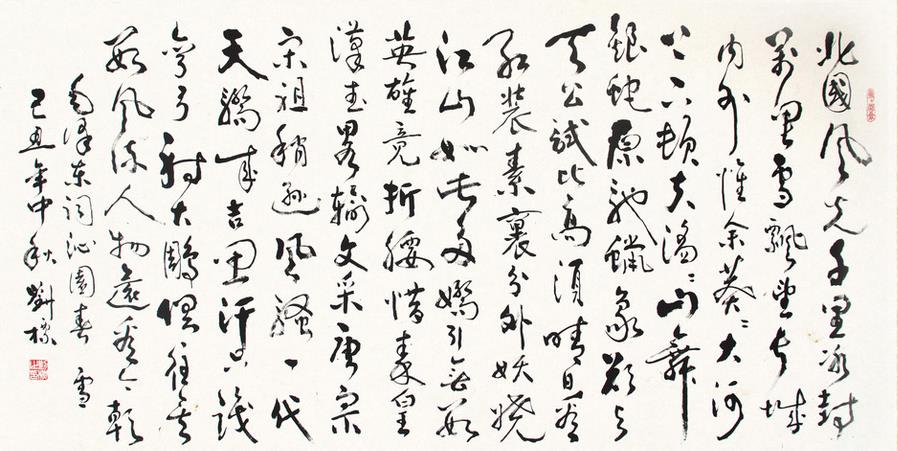 北國風光千里冰封
萬里雪飄望長城
内外惟余莽〻大河
上下頓失滔〻山舞
銀蛇原馳蠟象欲与
天公試比高須晴日看
红装素裹分外妖嬈
江山如此多嬌引無數
英雄竞折腰惜秦皇
漢武略輸文采唐宗
宋祖稍遜風騷一代
天驕成吉思汗只識
彎弓射大鵰俱往矣
數風流人物還看今朝
毛澤東詞沁園春 雪
己丑年中秋 劉